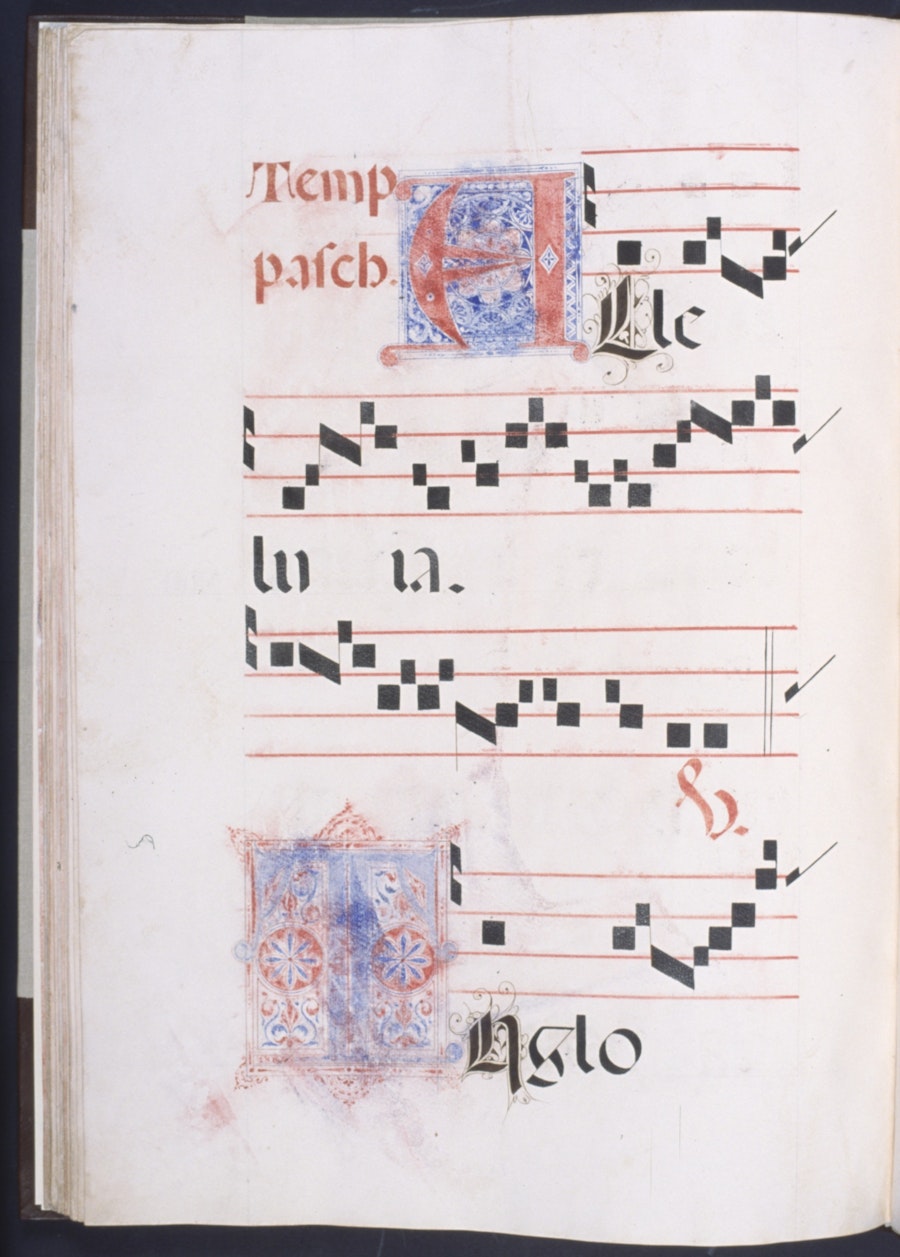 Temp
pasch. ALle
lu ia.
V.
INglo